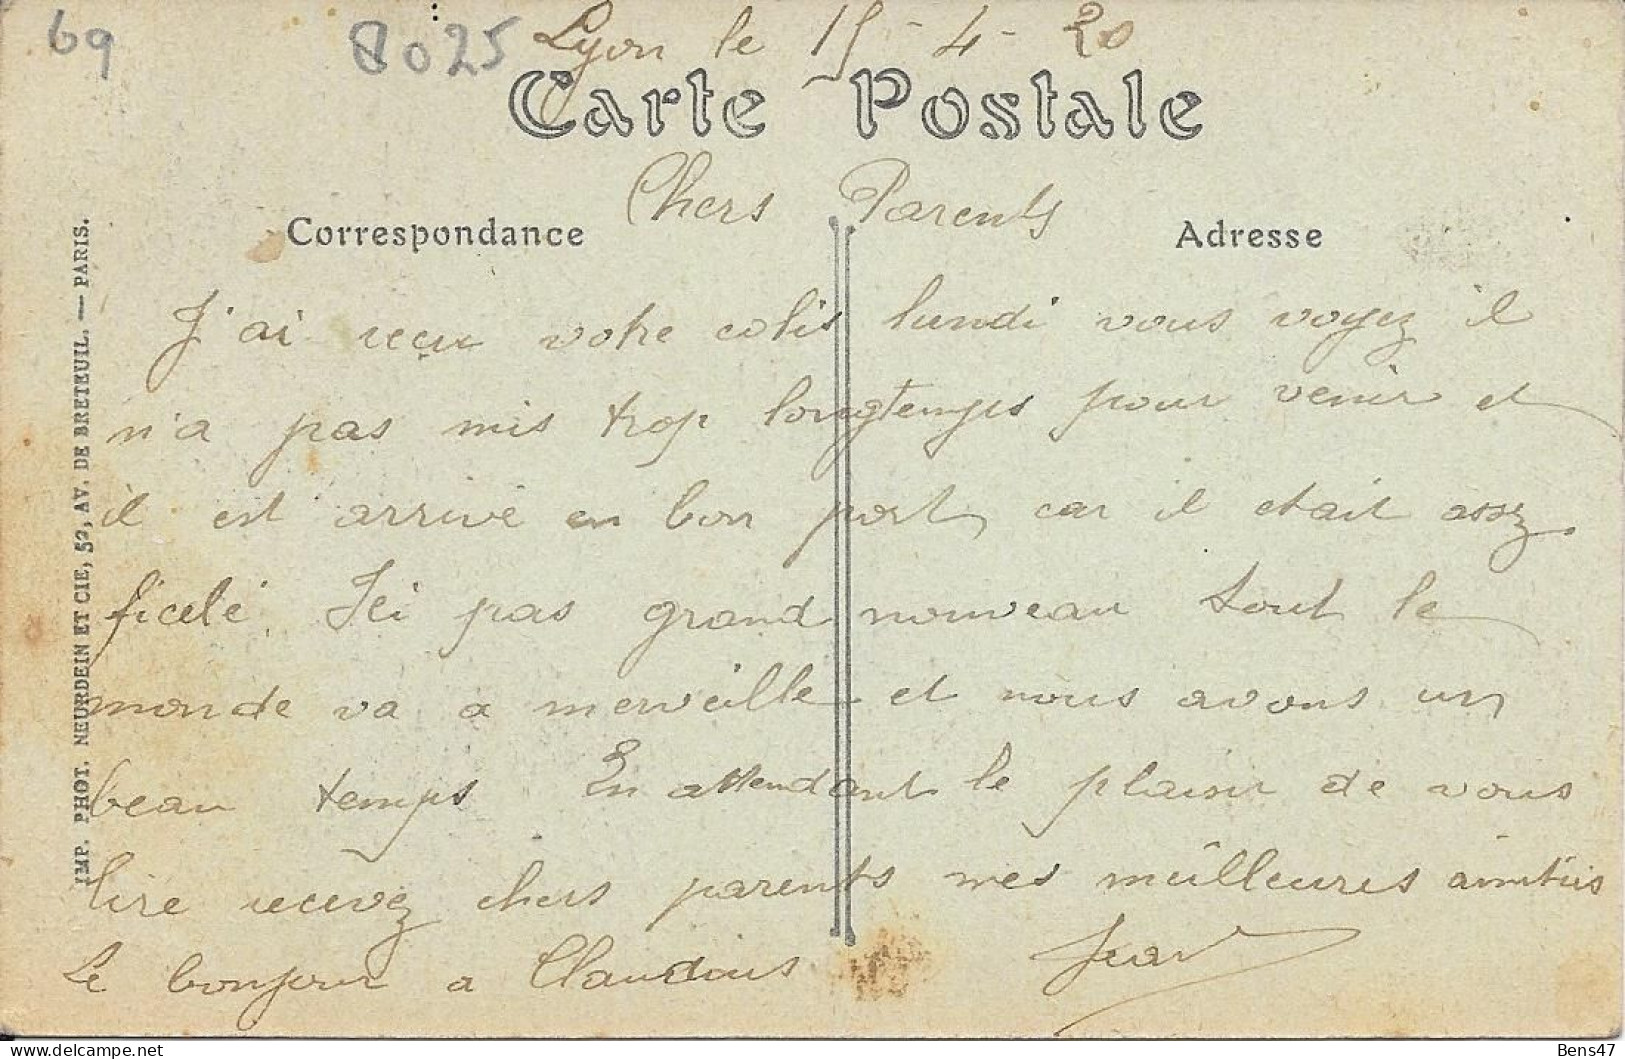 69
8025
Lyon le 15-4-20
Carte Postale
Chers Parents
Correspondance
Adresse
J'ai reçu votre colis lundi vous voyez il
n'a pas mis trop longtemps pour venir et
il est arrivé en bon port, car il etait assez
ficelé. Ici pas grand nouveau tout le
monde va a merveille et nous avons un
beau temps En attendant le plaisir de vous
lire recevez chers parents mes meilleures amitiés
Le bonjour a Claudius
Jean
IMP. PHOT. NEURDEIN ET CIE, 52, AV. DE BRETEUIL. — PARIS.
Bens47